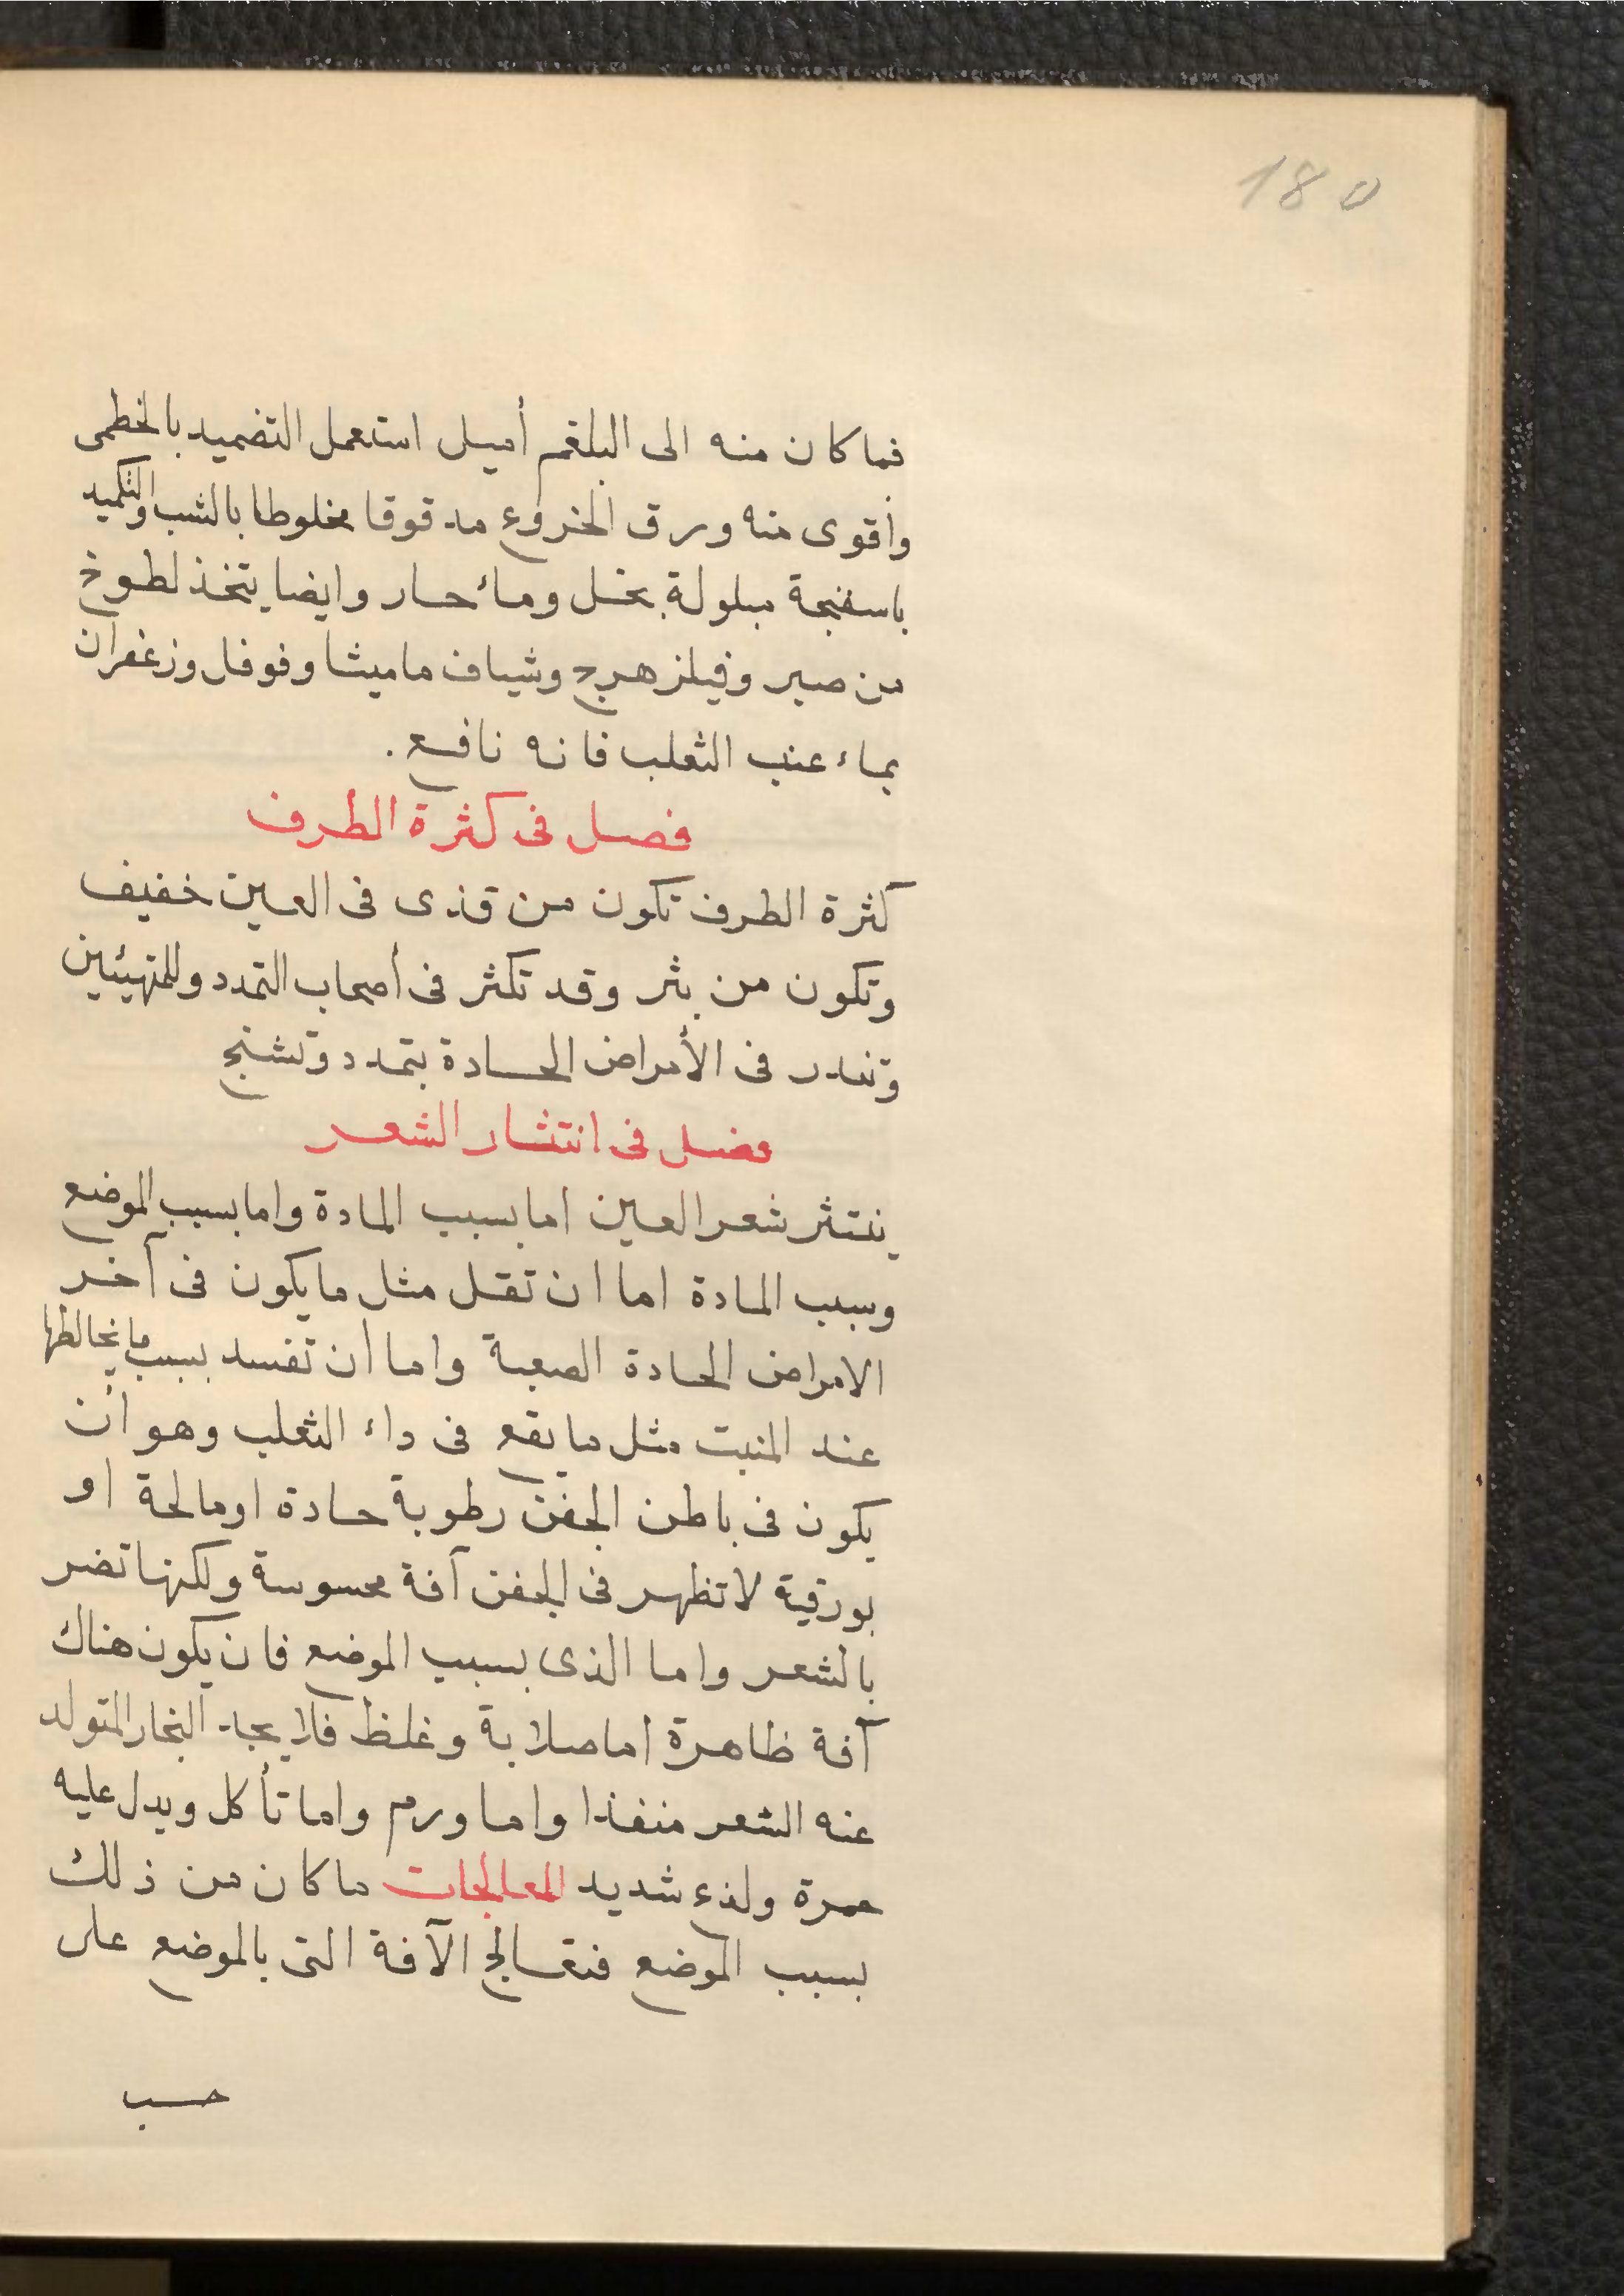 180
فما كان منه الى البلغم أميل استعمل التضميد بالخطمى
وأقوى منه ورق الخروع مدقوقا مخلوطا بالشب والتكميد
باسفنجة مبلولة بخل ومائ حار وايضا يتخذ لطوخ
من صبر وفيلزهرج وشياف ماميثا وفوفل وزعفران
بماء عنب الثعلب فانه نافع .
فصل فى كثرة الطرف
كثرة الطرف تكون من قذى فى العين خفيف
وتكون من بثر وقد تكثر فى أصحاب التمدد وللمتهيئين
وتندر فى الأمراض الحادة بتمدد وتشنج
فضل فى انتثار الشعر
ينتثر شعر العين اما بسبب المادة واما بسبب الموضع
وسبب المادة اما ان تقل مثل ما يكون فى آخر
الامراض الحادة الصعبة واما أن تفسد بسبب ما يخالطها
عند المنبت مثل ما يقع فى داء الثعلب وهو أن
يكون فى باطن الجفن رطوبة حادة او مالحة او
بورقية لا تظهر فى الجفن آفة محسوسة ولكنها تضر
بالشعر واما الذى بسبب الموضع فان يكون هناك
آفة ظاهرة اما صلابة وغلظ فلا يجد البخار المتولد
عنه الشعر منفذا واما ورم واما تأكل ويدل عليه
حمرة ولذع شديد المعالجات ما كان من ذلك
بسبب الموضع فتعالج الآفة التى بالموضع على
حسب